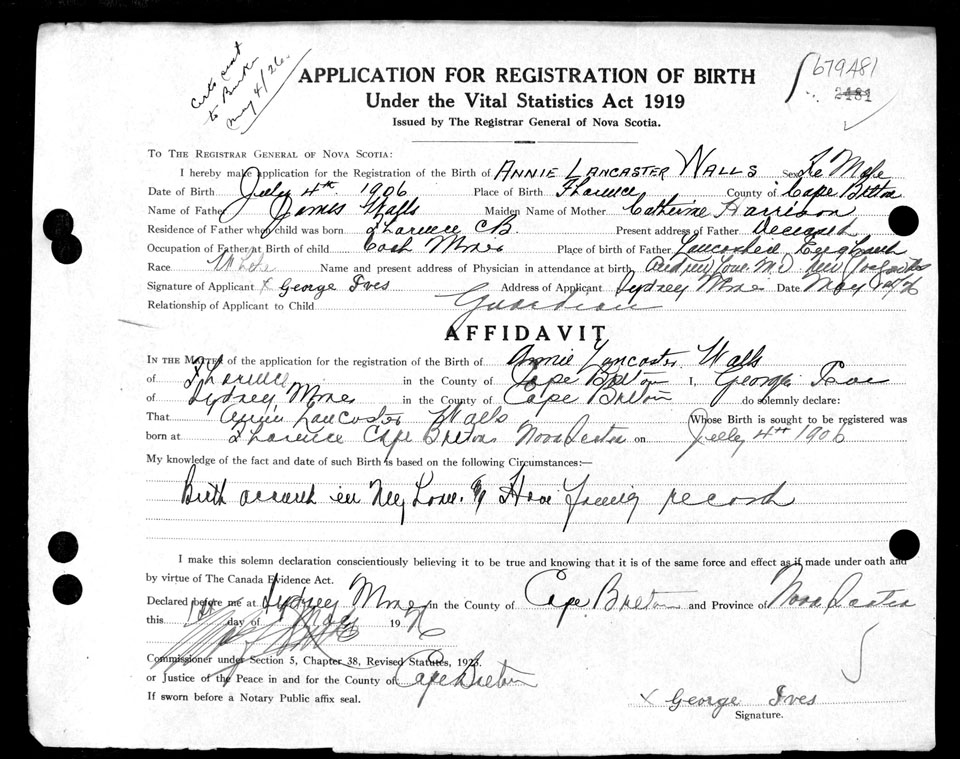 Certs sent
to Banker
May 4/26.
679481
2481
APPLICATION FOR REGISTRATION OF BIRTH
Under the Vital Statistics Act 1919
Issued by The Registrar General of Nova Scotia.
To The Registrar General of Nova Scotia:
I hereby make application for the Registration of the Birth of ANNIE LANCASTER WALLS Sex Fe Male
Date of Birth July 4th 1906 Place of Birth Florence County of Cape Breton
Name of Father James Walls Maiden Name of Mother Catherine Harrison
Residence of Father when child was born Florence CB. Present address of Father Deceased
Occupation of Father at Birth of child Coal Miner Place of birth of Father England
Race White Name and present address of Physician in attendance at birth M.D.
Signature of Applicant x George Ives Address of Applicant Sydney Mines Date May
Relationship of Applicant to Child Guardian
AFFIDAVIT
In the Matter of the application for the registration of the Birth of Annie Lancaster Walls
of Florence in the County of Cape Breton I, George Ives
of Sydney Mines in the County of Cape Breton do solemnly declare:
That Annie Lancaster Walls Whose Birth is sought to be registered was
born at Florence Cape Breton Nova Scotia on July 4th 1906
My knowledge of the fact and date of such Birth is based on the following Circumstances:—
Birth occurred in My Home. & I Have Family record
I make this solemn declaration conscientiously believing it to be true and knowing that it is of the same force and effect as if made under oath and
by virtue of The Canada Evidence Act.
Declared before me at Sydney Mines in the County of Cape Breton and Province of Nova Scotia
this day of May 19
Commissioner under Section 5, Chapter 38, Revised Statutes, 1923.
or Justice of the Peace in and for the County of Cape Breton
If sworn before a Notary Public affix seal.
x George Ives
Signature.